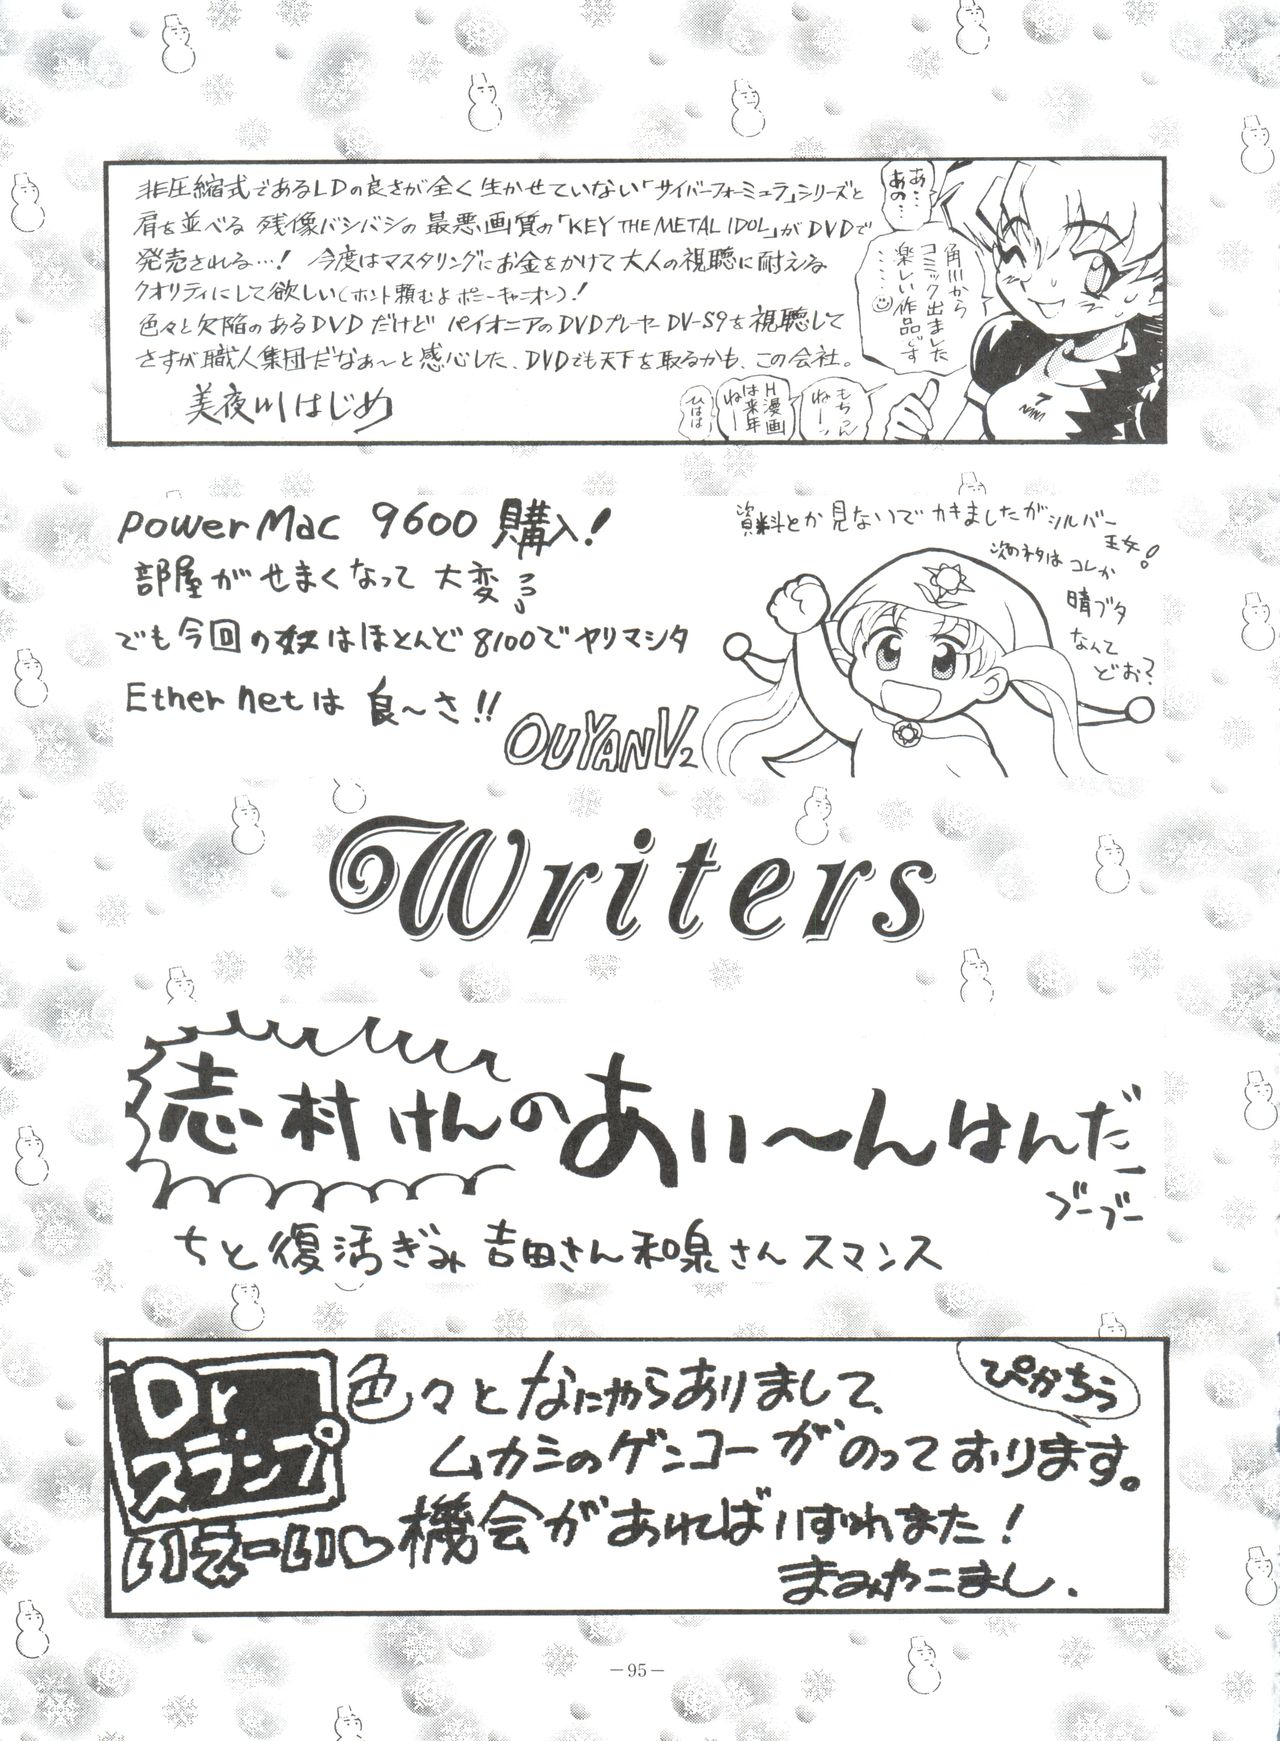 非圧縮式であるLDの良さが全く生かせていない「サイバーフォーミュラ」シリーズと
肩を並べる 残像バシバシの 最悪画質の「KEY THE METAL IDOL」がDVDで
発売される…! 今度はマスタリングにお金をかけて大人の視聴に耐える
クオリティにして欲しい(ホント頼むよポニーキャニオン)!
色々と欠陥のあるDVDだけど パイオニアのDVDプレーヤーDV-S9を視聴して
さすが職人集団だなぁ〜と感心した、DVDでも天下を取るかも、この会社。
美夜川はじめ
あ…
あの…
角川から
コミック出ました
楽しい作品です
……
もちろん
ねーッ
H漫画
は来年
ねー
ひはは
7
powerMac 9600 購入!
部屋がせまくなって 大変
でも今回の奴はほとんど8100でヤリマシタ
Ether netは 良〜さ!!
OUYANV2
資料とか見ないでかきましたがシルバー
王女!
次のネタは コレか
晴ブタ
なんて
どお?
Writers
志村けんのあい〜んはんだ
ブーブー
ちと復活ぎみ 吉田さん和泉さん スマンス
Dr
スランプ
色々となにやらありまして、
ぴかちう
ムカシのゲンコーがのっております。
いえーい♡機会があればいずれまた!
まみやこまし.
—95—